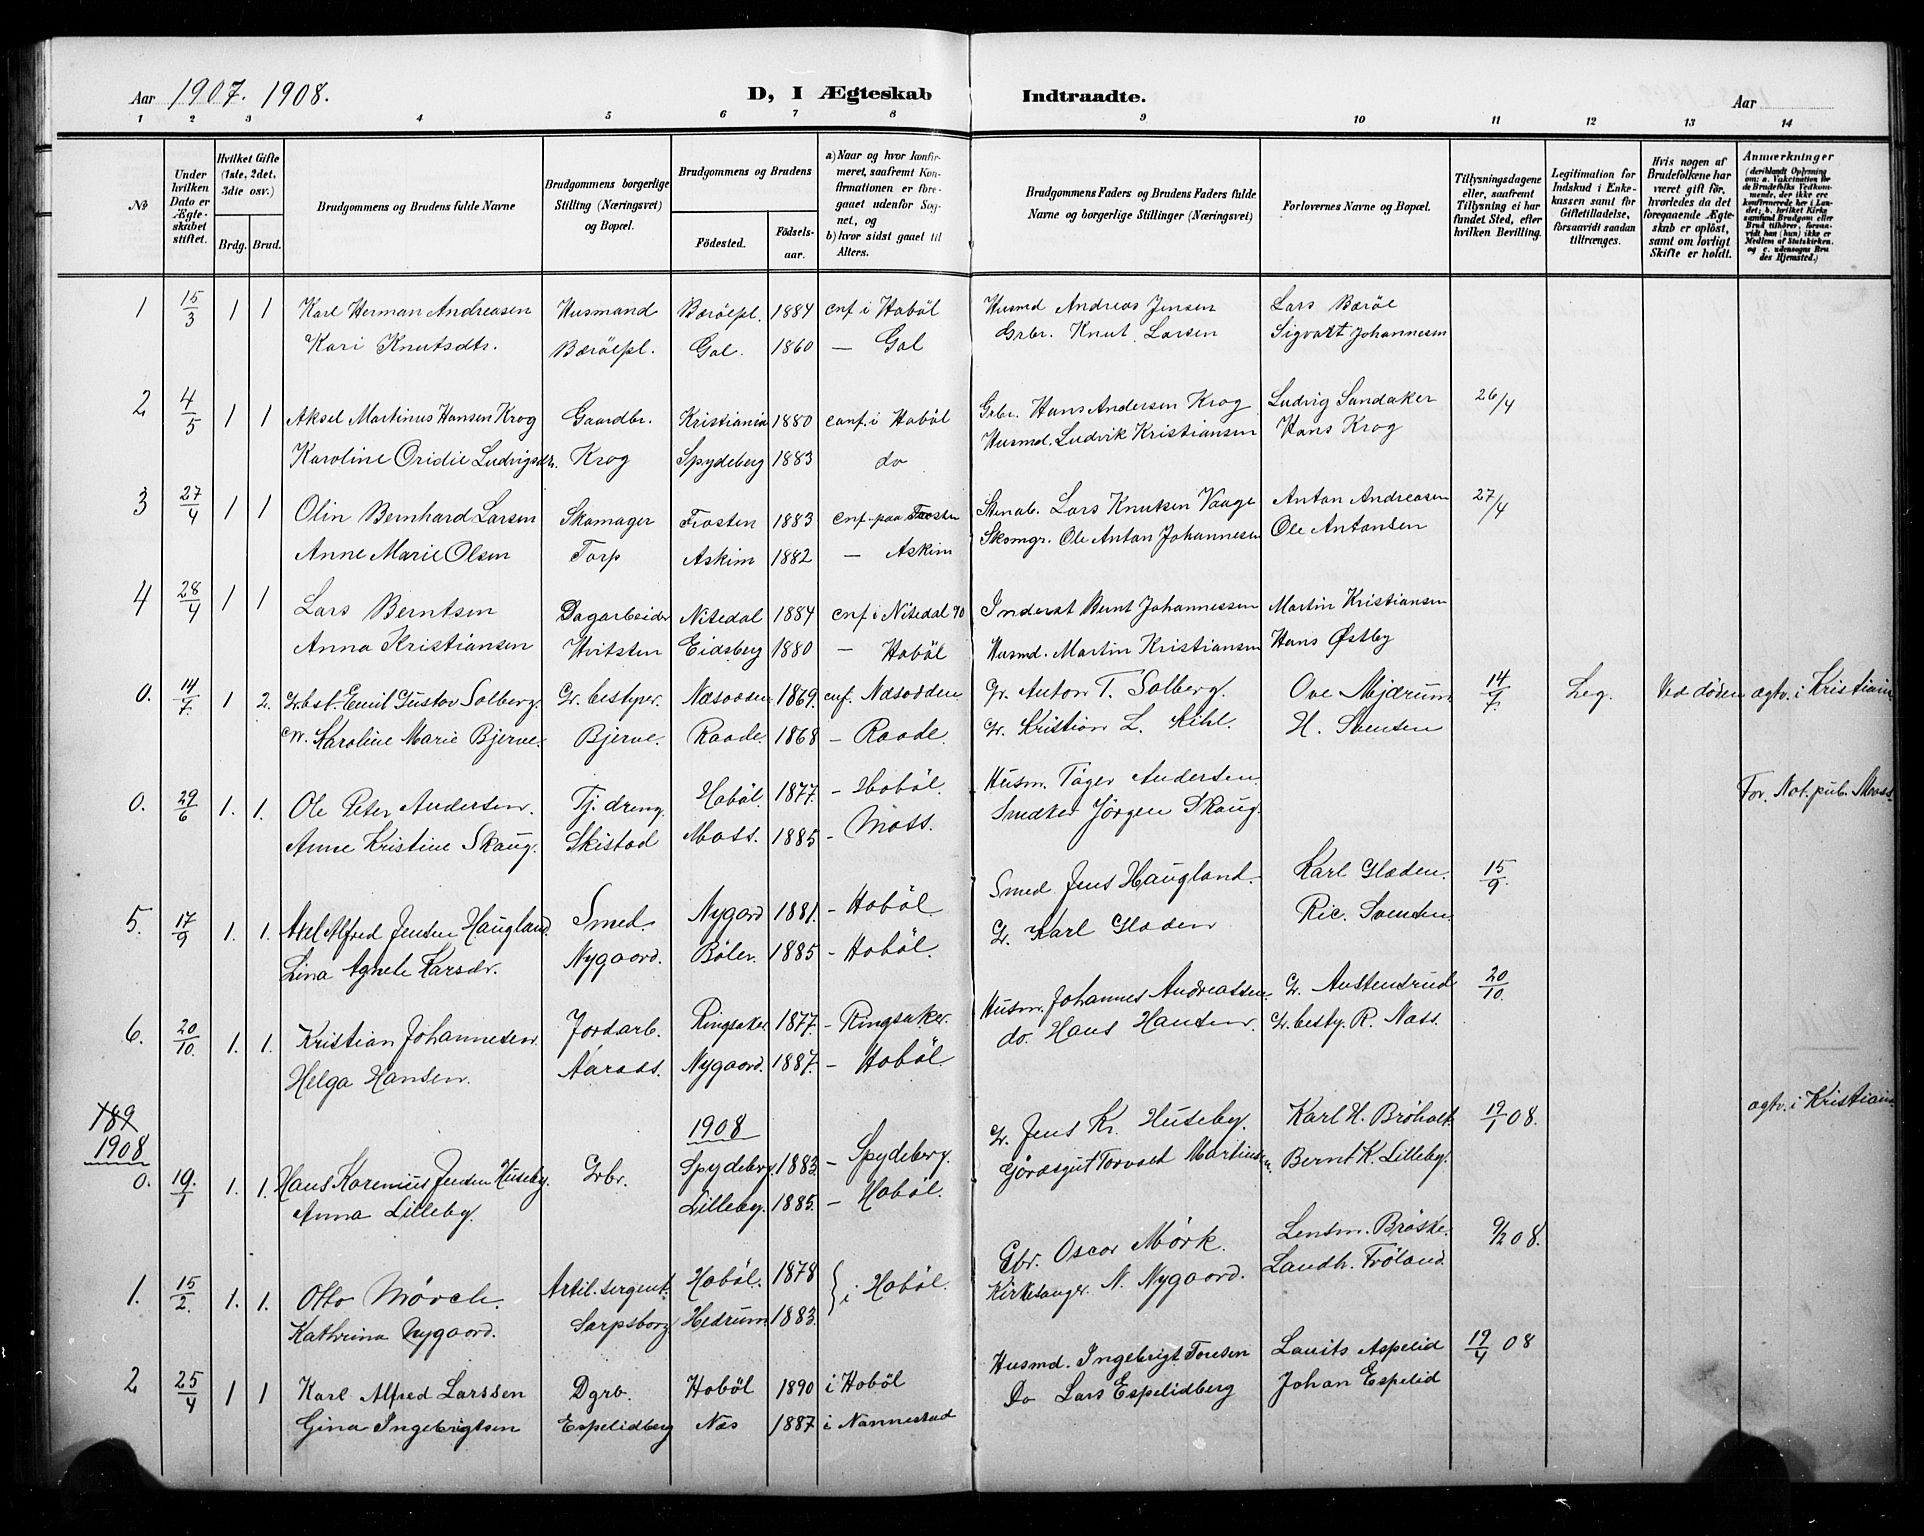 Aar 1907. 1908.
D, I Ægteskab Indtraadte.
Aar
1 2 3 4 5 6 7 8 9 10 11 12 13 14
No
Under hvilken Dato er Ægteskabet stiftet.
Hvilket Gifte (1ste, 2det, 3die osv.)
Brdg. Brud.
Brudgommens og Brudens fulde Navne
Brudgommens borgerlige Stilling (Næringsvei) og Bopæl.
Brudgommens og Brudens
Fødested.
Fødselsaar.
a) Naar og hvor konfirmeret, saafremt Konfirmationen er foregaaet udenfor Sognet, og
b) hvor sidst gaaet til Alters.
Brudgommens Faders og Brudens Faders fulde Navne og borgerlige Stillinger (Næringsvei)
Forlovernes Navne og Bopæl.
Tillysningsdagene eller, saafremt Tillysning ei har fundet Sted, efter hvilken Bevilling.
Legitimation for Indskud i Enkekassen samt for Giftetilladelse, forsaavidt saadan tiltrænges.
Hvis nogen af Brudefolkene har været gift før, hvorledes da det foregaaende Ægteskab er opløst, samt om lovligt Skifte er holdt.
Anmærkninger (deriblandt Oplysning om: a. Vakcination for de Brudefolks Vedkommende, der ikke ere konfirmerede her i Landet; b. hvilket Kirkesamfund Brudgom eller Brud tilhører, forsaavidt han (hun) ikke er Medlem af Statskirken, og c. udensogns Brudes Hjemsted.)
1 15/3 1 1 Karl Herman Andreasen Husmand Bærölpl. 1884 cnf. i Haböl Husmd Andreas Jensen Lars Bæröl
Kari Knutsdtr. Bærölpl. Gol. 1860 — Gol Grbr. Knut Larsen Sigvart Johannesen
2 4/5 1 1 Aksel Martinus Hansen Krog Gaardbr. Kristiania 1880 conf. i Haböl Grbr. Hans Andersen Krog Ludvig Sandaker 26/4
Karoline Oridie Ludvigsdtr. Krog Spydeberg 1883 do Husmd. Ludvik Kristiansen Hans Krog
3 27/4 1 1 Olin Bernhard Larsen Skomager Frosten 1883 cnf. paa Frosten Stenab. Lars Knutsen Vaage Anton Andreasen 27/4
Anne Marie Olsen Torp Askim 1882 — Askim Skomgr. Ole Anton Johannesen Ole Antonsen
4 28/4 1 1 Lars Berntsen Dagarbeider Nitedal 1884 cnf i Nitedal 90 Inderst Bernt Johannessen Martin Kristiansen
Anna Kristiansen Hvitsten Eidsberg 1880 — Haböl Husmd. Martin Kristiansen Hans Østby
0. 14/7. 1 2. Grbst. Emil Gustav Solberg. Gr. bestyrer. Næsodden 1869. cnf. Næsodden Gr. Anton T. Solberg. Ove Mjærum 14/7. Leg. Ved døden ægtv. i Kristiania
Karoline Marie Bjerve. Bjerve. Raade. 1868 — Raade. Gr. Kristian L. Kihl. H. Svensen
0. 29/6 1. 1. Ole Peter Andersen. Tj. dreng. Haböl. 1877. — Haböl. Husm. Töger Andersen For Not. pub. Moss
Anne Kristine Skaug. Skistad Moss. 1885 — Moss. Snedker Jörgen Skaug.
5. 17/9 1. 1. Axel Alfred Jensen Haugland. Smed. Nygard 1881. — Haböl. Smed Jens Haugland. Karl Gladen. 15/9.
Lina Agnete Karsdr. Nygaard. Böler. 1885 — Haböl. Gr. Karl Gladen Ric. Svensen
6. 20/10. 1. 1. Kristian Johannesen. Jordarb. Ringsaker 1877. — Ringsaker. Husm. Johannes Andreassen. Gr. Austensrud 20/10.
Helga Hansen. Aaraas. Nygaard. 1887. — Haböl. do. Hans Hansen. Gr. besty. R. Nass.
189
1908 1908
0. 19./1 1. 1. Hans Karenius Jensen Huseby. Grbr. Spydeberg. 1883. — Spydeberg. Gr. Jens Kr. Huseby. Karl H. Bröholt 19/1 08. ægtv. i Kristiania
Anna Lilleby. Lilleby. 1885. — Haböl. Torvald Martinsen. Bernt K. Lilleby.
1. 15/2. 1. 1. Otto Mörch. Artil. sergent. Haböl. 1878 i Haböl. Gbr. Oscar Mörk. Lensm. Bröske. 9/2 08.
Kathrina Nygaard. Sarpsborg Hedrum 1883. Kirkesanger. N. Nygaard. Landh. Fröland.
2 25/4 1 1 Karl Alfred Larssen Dgrb. Haböl 1890 i Haböl Husmd. Ingebrigt Tonsen Lauits Aspelid 19/4 08
Gina Ingebrigtsen Espelidberg Næs 1887 i Nannestad Do Lars Espelidberg Johan Espelid